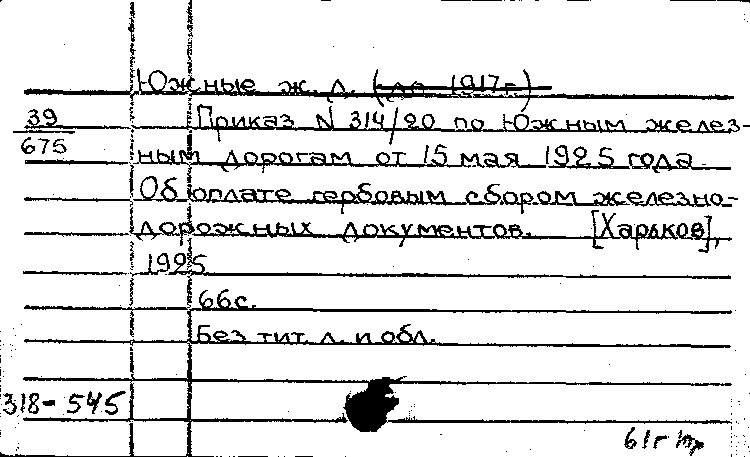 Южные ж. д. (до 1917г.)
39
675
Приказ N 314/20 по Южным желез-
ным дорогам от 15 мая 1925 года.
Об оплате гербовым сбором железно-
дорожных документов. [Харьков],
1925
66с.
Без тит. л. и обл.
318-545
61г